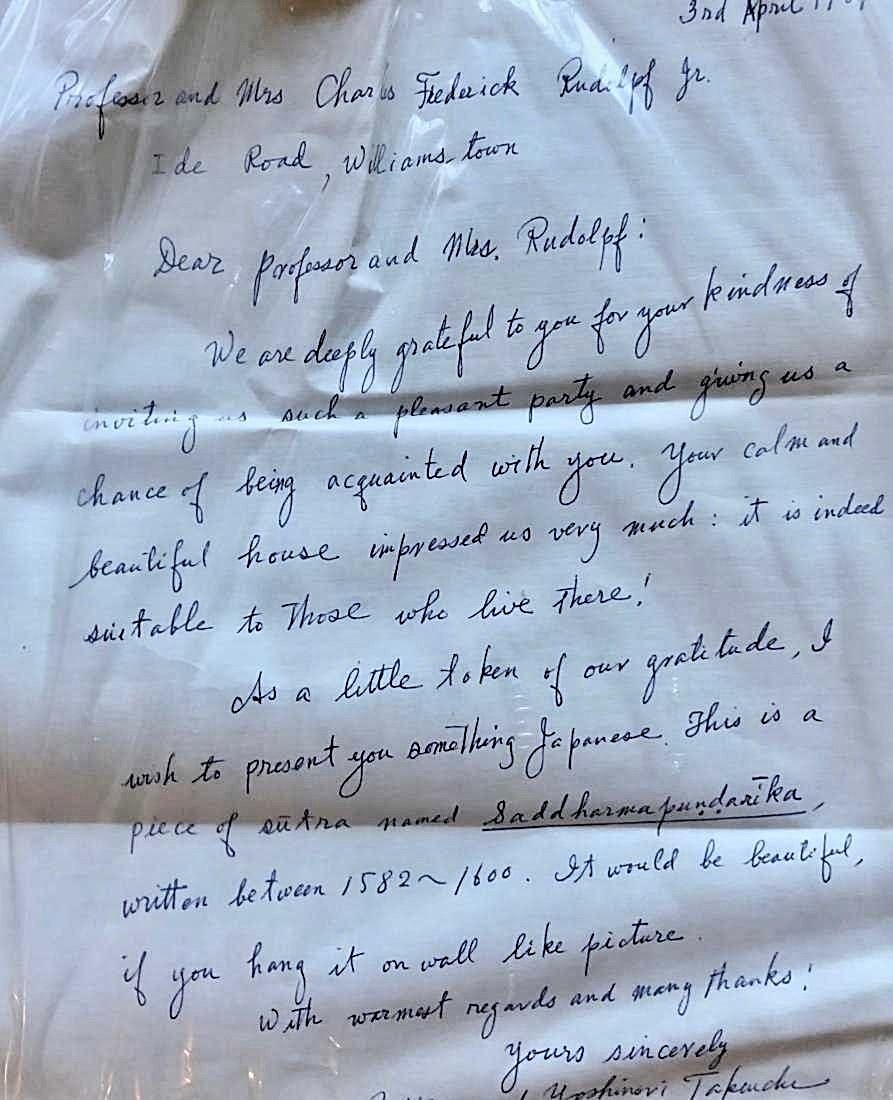 3rd April
Professor and Mrs Charles Frederick Rudolpf Jr.
Ide Road, Williamstown
Dear Professor and Mrs. Rudolpf:
We are deeply grateful to you for your kindness of
inviting us such a pleasant party and giving us a
chance of being acquainted with you. Your calm and
beautiful house impressed us very much: it is indeed
suitable to Those who live there!
As a little token of our gratitude, I
wish to present you something Japanese. This is a
piece of sūtra named Saddharmapuṇḍarīka,
written between 1582~1600. It would be beautiful,
if you hang it on wall like picture.
With warmest regards and many thanks!
Yours sincerely
Yoshinori Takeuchi